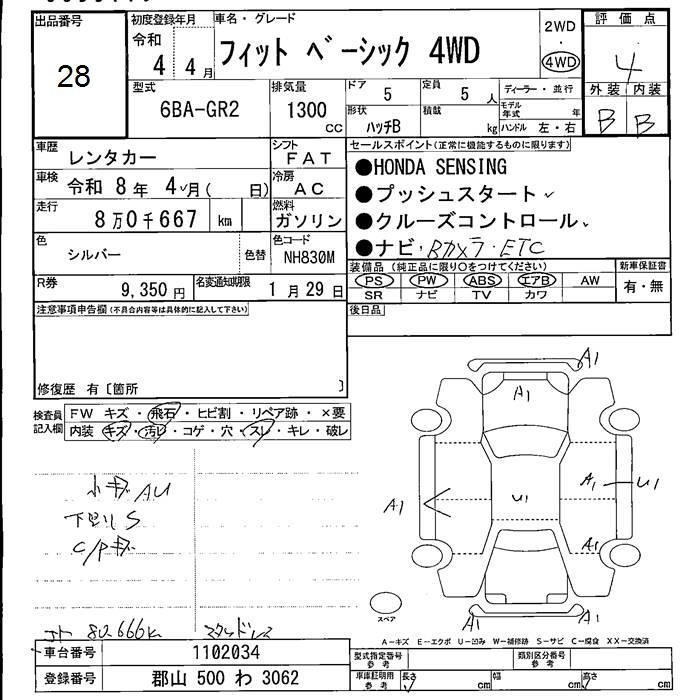 出品番号
28
初度登録年月
令和
4 4月
車名・グレード
フィット ベーシック 4WD
2WD
・
4WD
評価点
4
外装 内装
B B
型式
6BA-GR2
排気量
1300
cc
ドア
5
定員
5 人
形状
ハッチB
積載
kg
ディーラー・並行
モデル年式 年
ハンドル 左・右
車歴
レンタカー
シフト
FAT
車検
令和 8年 4月( 日)
冷房
AC
走行
8万0千667 km
燃料
ガソリン
色
シルバー
色替
色コード
NH830M
R券
9,350 円
名変通知期限
1月29日
セールスポイント(正常に機能するものに限ります)
●HONDA SENSING
●プッシュスタート
●クルーズコントロール
●ナビ・Bカメラ・ETC
装備品 (純正品に限り○をつけてください)
PS PW ABS エアB AW
SR ナビ TV カワ
新車保証書
有・無
注意事項申告欄(不具合内容等は具体的に記入して下さい)
後日品
修復歴 有〔箇所 〕
検査員記入欄
FW キズ・飛石・ヒビ割・リペア跡・×要
内装 キズ・汚れ・コゲ・穴・スレ・キレ・破レ
小キズ AU
下回り S
C/Pキズ
80,666k
スタッドレス
A1
A1
U1
A1
A1
U1
A1
A1
A1
スペア
A-キズ E-エクボ U-凹み W-補修跡 S-サビ C-腐食 XX-交換済
車台番号
1102034
登録番号
郡山 500 わ 3062
型式指定番号
参考
類別区分番号
参考
車庫証明用
参考
長さ cm
幅 cm
高さ cm